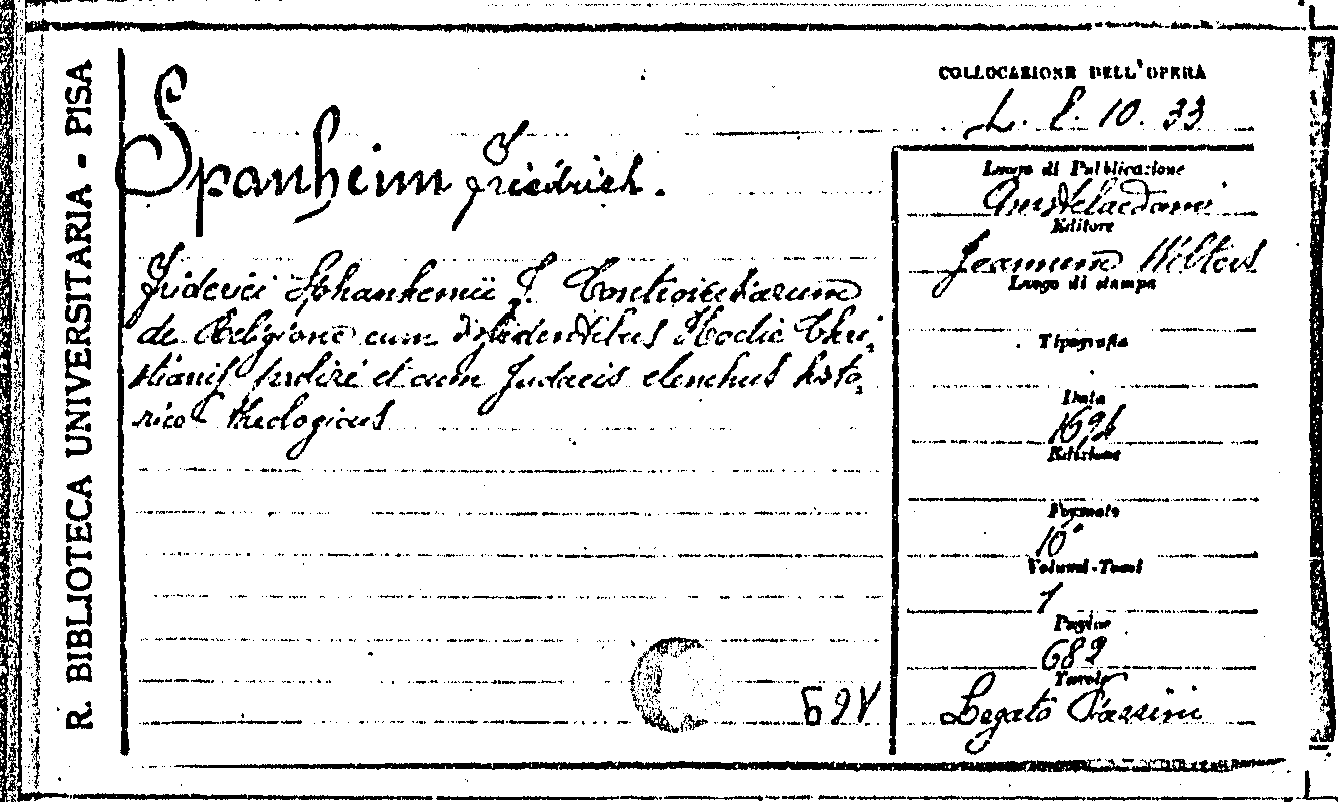 R. BIBLIOTECA UNIVERSITARIA - PISA
COLLOCAZIONE DELL'OPERA
L. l. 10. 33
Spanheim Friedrich.
Luogo di Pubblicazione
Amstelaedami
Editore
Joannem Wolters
Luogo di stampa
Friderici Sphanhemii F. Controversiarum
de Religione cum dissidentibus Hodie Chri-
stianis prolixe et cum Judaeis elenchus histo-
rico theologicus
Tipografia
Data
1694
Edizione
Formato
16°
Volumi-Tomi
1
Pagine
682
Tavole
Legato Fassini